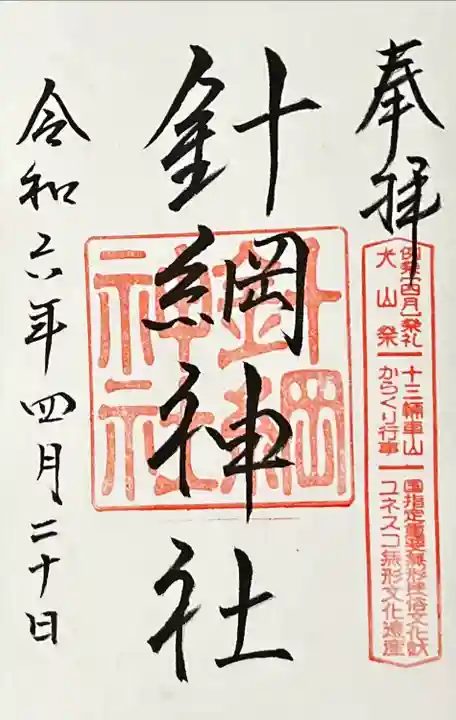 奉拝
例祭(四月)祭礼
犬山祭
十三輛車山
からくり行事
国指定重要無形民俗文化財
ユネスコ無形文化遺産
針綱神社
針綱神社
令和六年四月二十日